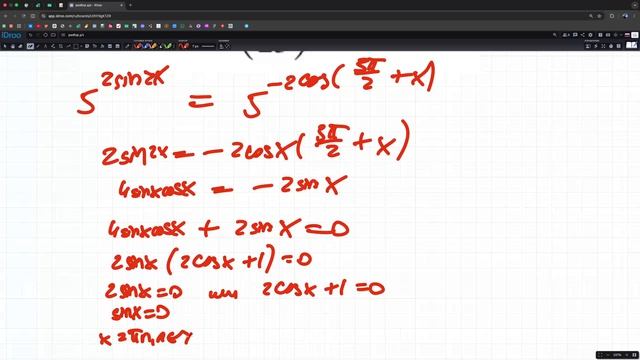 5^{2sin2x} = 5^{-2cos(5π/2 + x)}
2sin2x = -2cosx(5π/2 + x)
4sinxcosx = -2sinx
4sinxcosx + 2sinx = 0
2sinx(2cosx + 1) = 0
2sinx = 0 или 2cosx + 1 = 0
sinx = 0
x = πn, n∈Z
iDroo